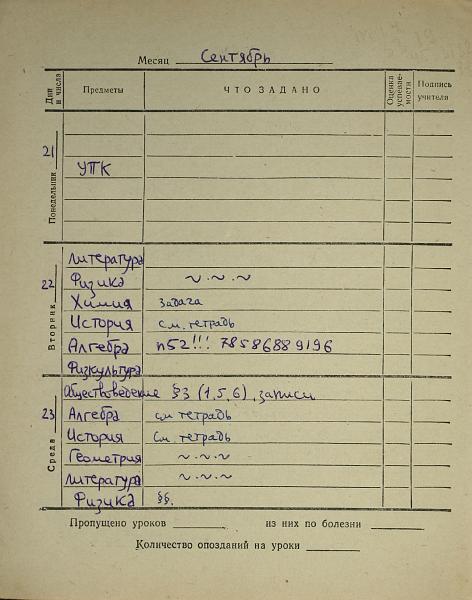 Месяц Сентябрь
Дни и числа Предметы ЧТО ЗАДАНО Оценка успеваемости Подпись учителя
Понедельник 21
УПК
Вторник 22
Литература
Физика ~.~.~
Химия задача
История см. тетрадь
Алгебра п52!!! 785 868 89 196
Физкультура
Среда 23
Обществоведение §3 (1,5,6), записи
Алгебра см тетрадь
История см. тетрадь
Геометрия ~.~.~
Литература ~.~.~
Физика §§.
Пропущено уроков из них по болезни
Количество опозданий на уроки